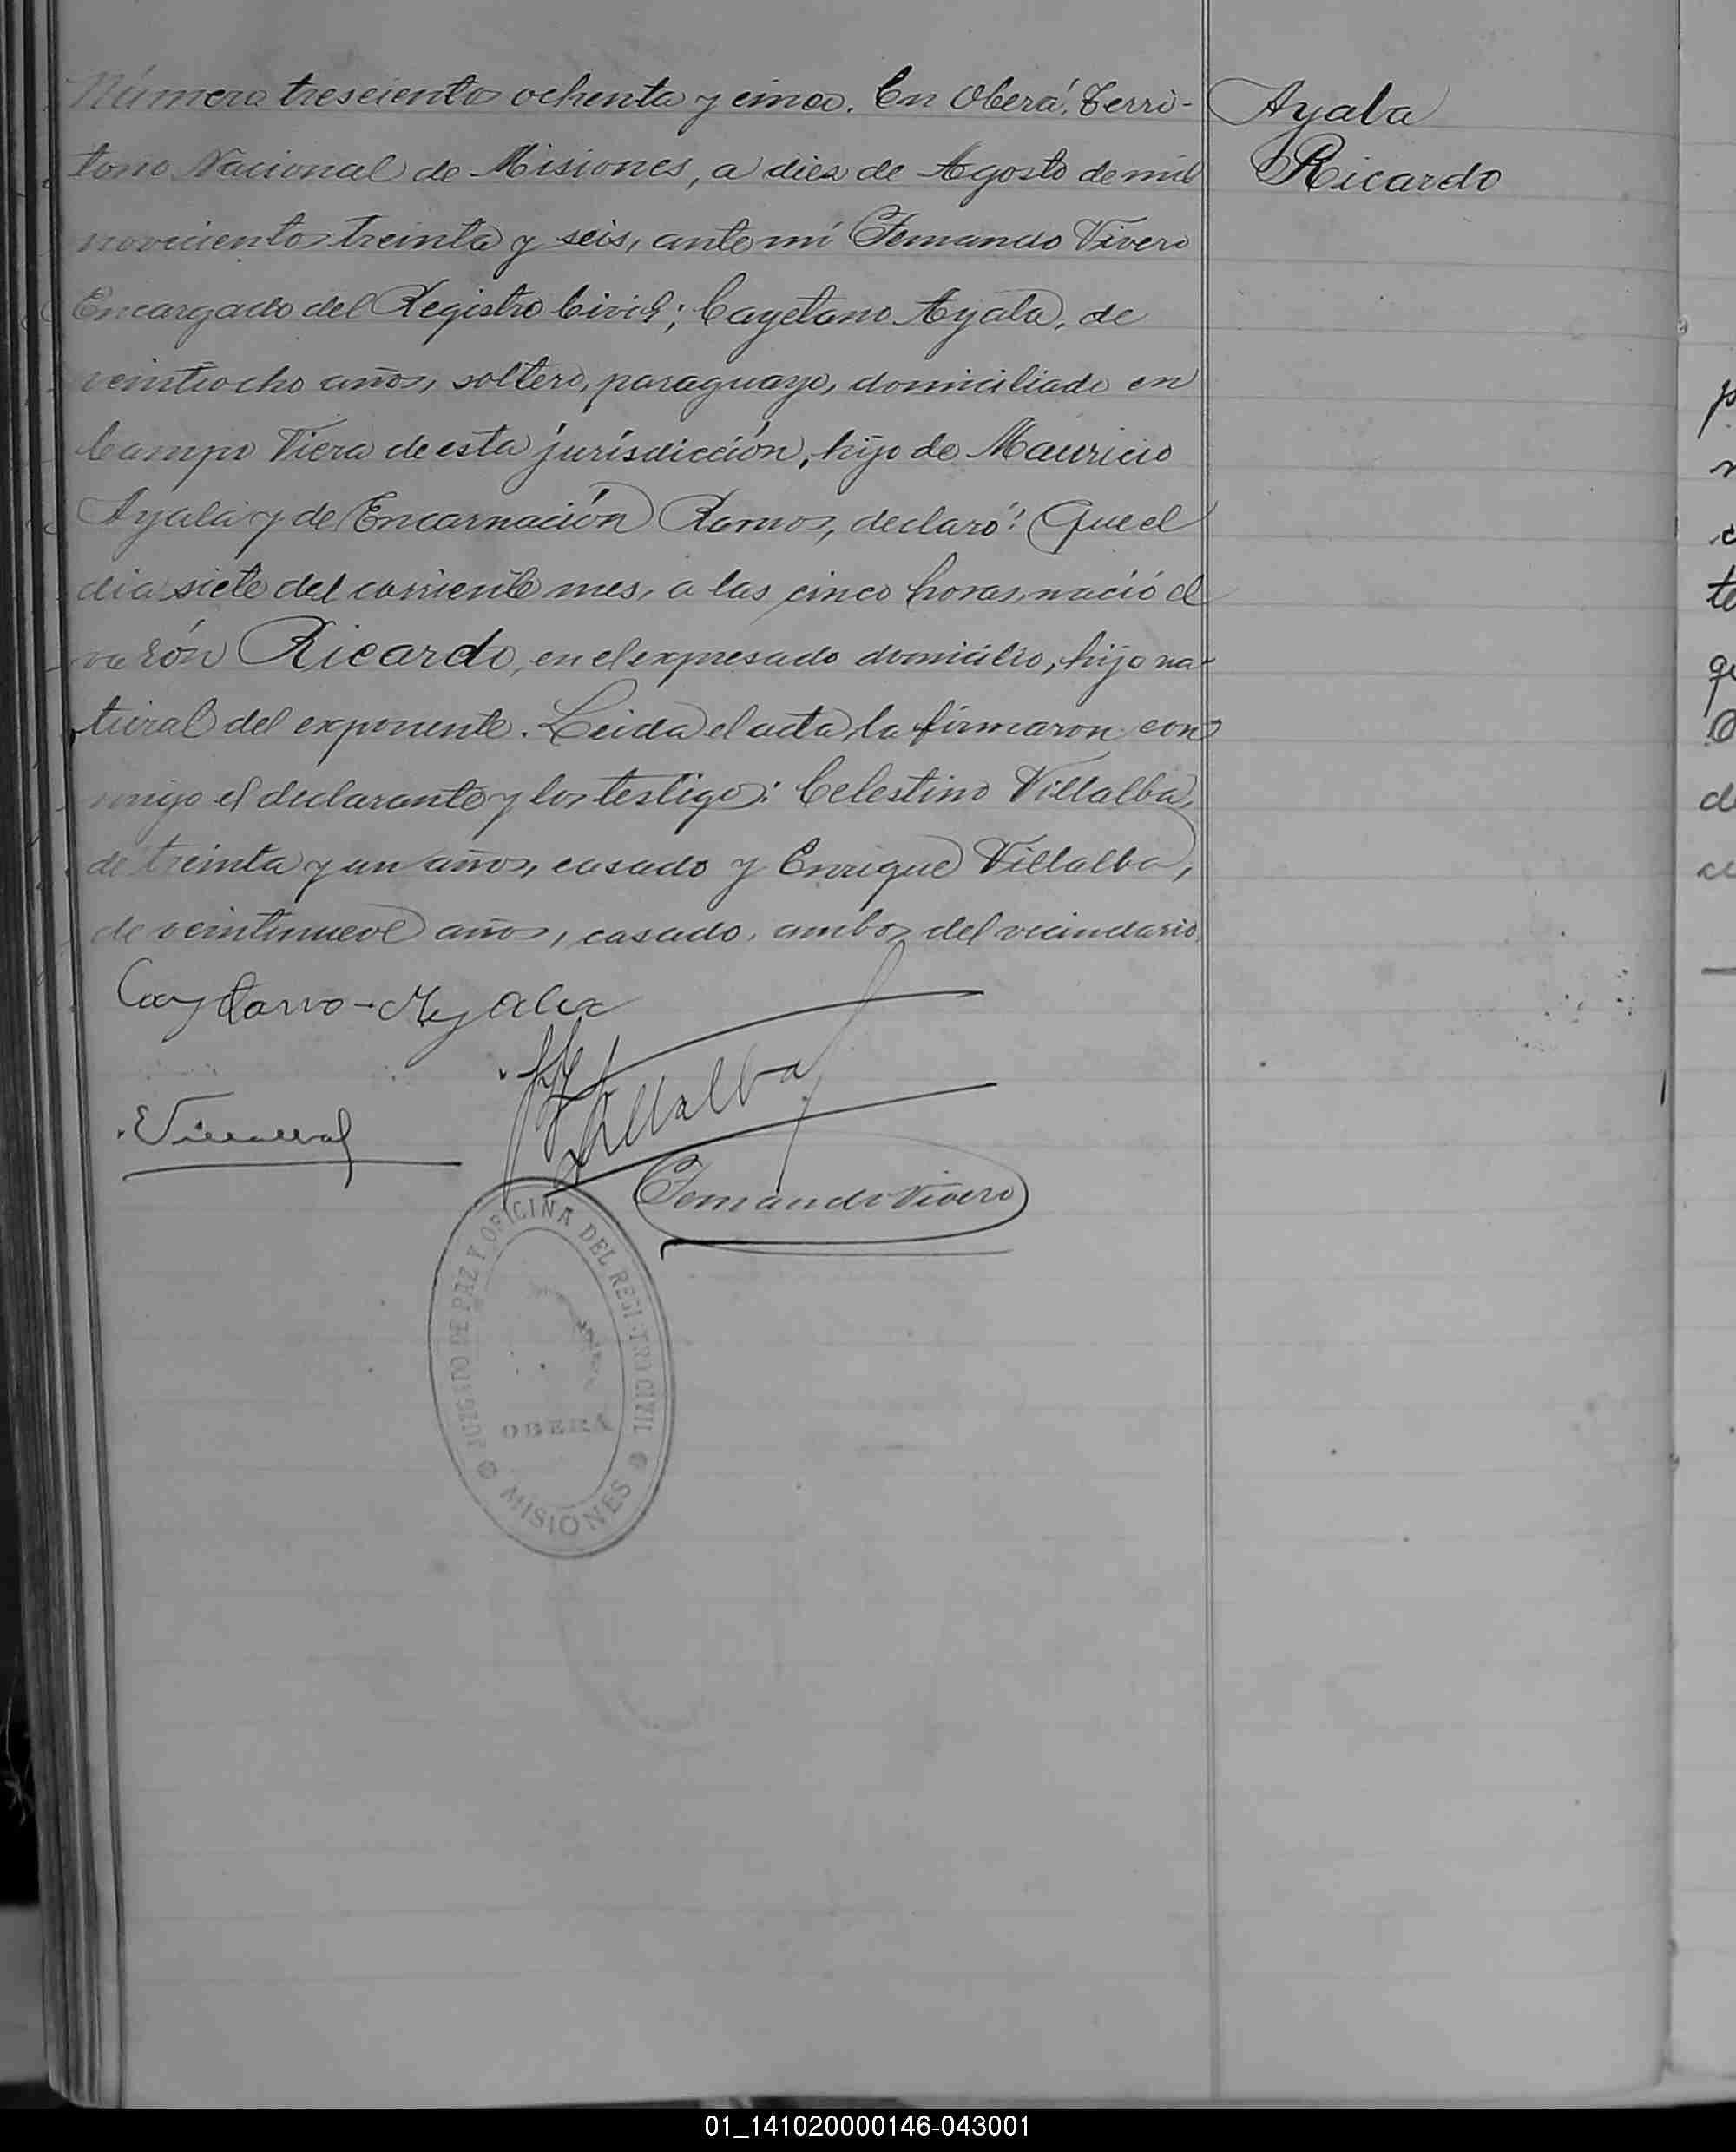 Número trescientos ochenta y cinco. En Oberá, Terri-
torio Nacional de Misiones, a diez de Agosto de mil
novecientos treinta y seis, ante mí Fernando Vivero
Encargado del Registro Civil; Cayetano Ayala, de
veintiocho años, soltero, paraguayo, domiciliado en
Campo Viera de esta jurisdicción, hijo de Mauricio
Ayala y de Encarnación Ramos, declaró: Que el
dia siete del corriente mes, a las cinco horas, nació el
varón Ricardo, en el expresado domicilio, hijo na-
tural del exponente. Leida el acta, la firmaron con-
migo el declarante y los testigos: Celestino Villalba,
de treinta y un años, casado y Enrique Villalba,
de veintinueve años, casado, ambos del vecindario.
Ayala
Ricardo
Caytano - Ayala
Villalba
EVillalba
Fernando Vivero
JUZGADO DE PAZ Y OFICINA DEL REGISTRO CIVIL
OBERÁ
MISIONES
01_141020000146-043001